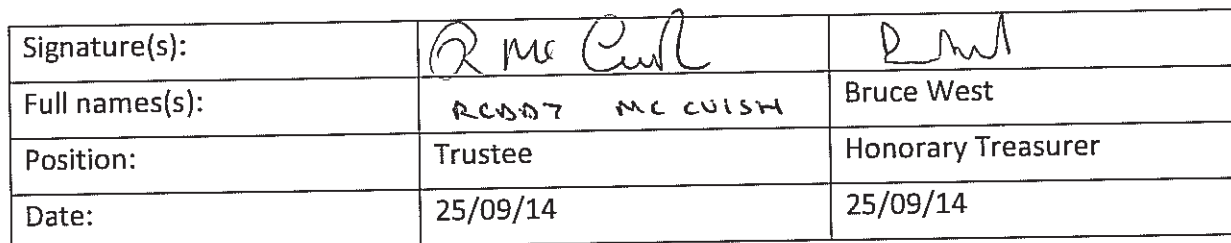 Signature(s): R Mc Cuish
Full names(s): RODDY MC CUISH Bruce West
Position: Trustee Honorary Treasurer
Date: 25/09/14 25/09/14